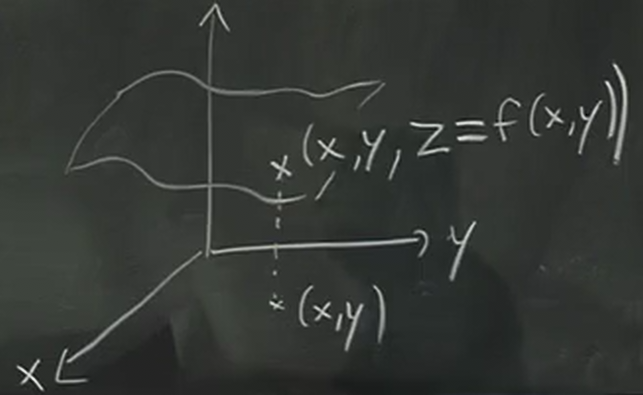 (x,y, z≡f(x,y))
y
(x,y)
x